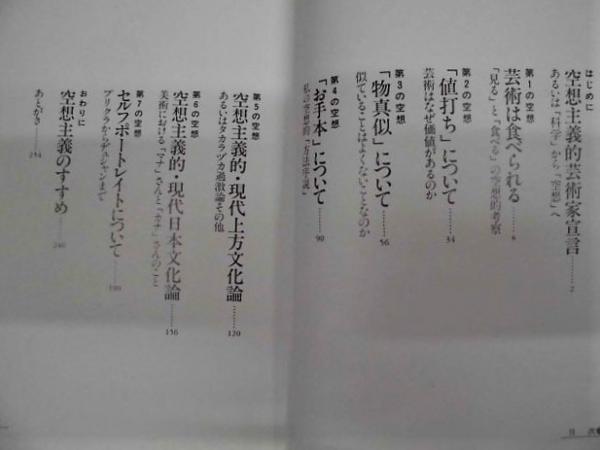 はじめに
空想主義的芸術家宣言………2
あるいは「科学」から「空想」へ
第1の空想
芸術は食べられる………8
「見る」と「食べる」の空想的考察
第2の空想
「値打ち」について………34
芸術はなぜ価値があるのか
第3の空想
「物真似」について………56
似ていることはよくないことなのか
第4の空想
「お手本」について………90
私の空想的「方法序説」
第5の空想
空想主義的・現代上方文化論………120
あるいはタカラヅカ過激論その他
第6の空想
空想主義的・現代日本文化論………156
美術における「マナ」さんと「カナ」さんのこと
第7の空想
セルフポートレイトについて………190
プリクラからデュシャンまで
おわりに
空想主義のすすめ………240
あとがき………254
目 次